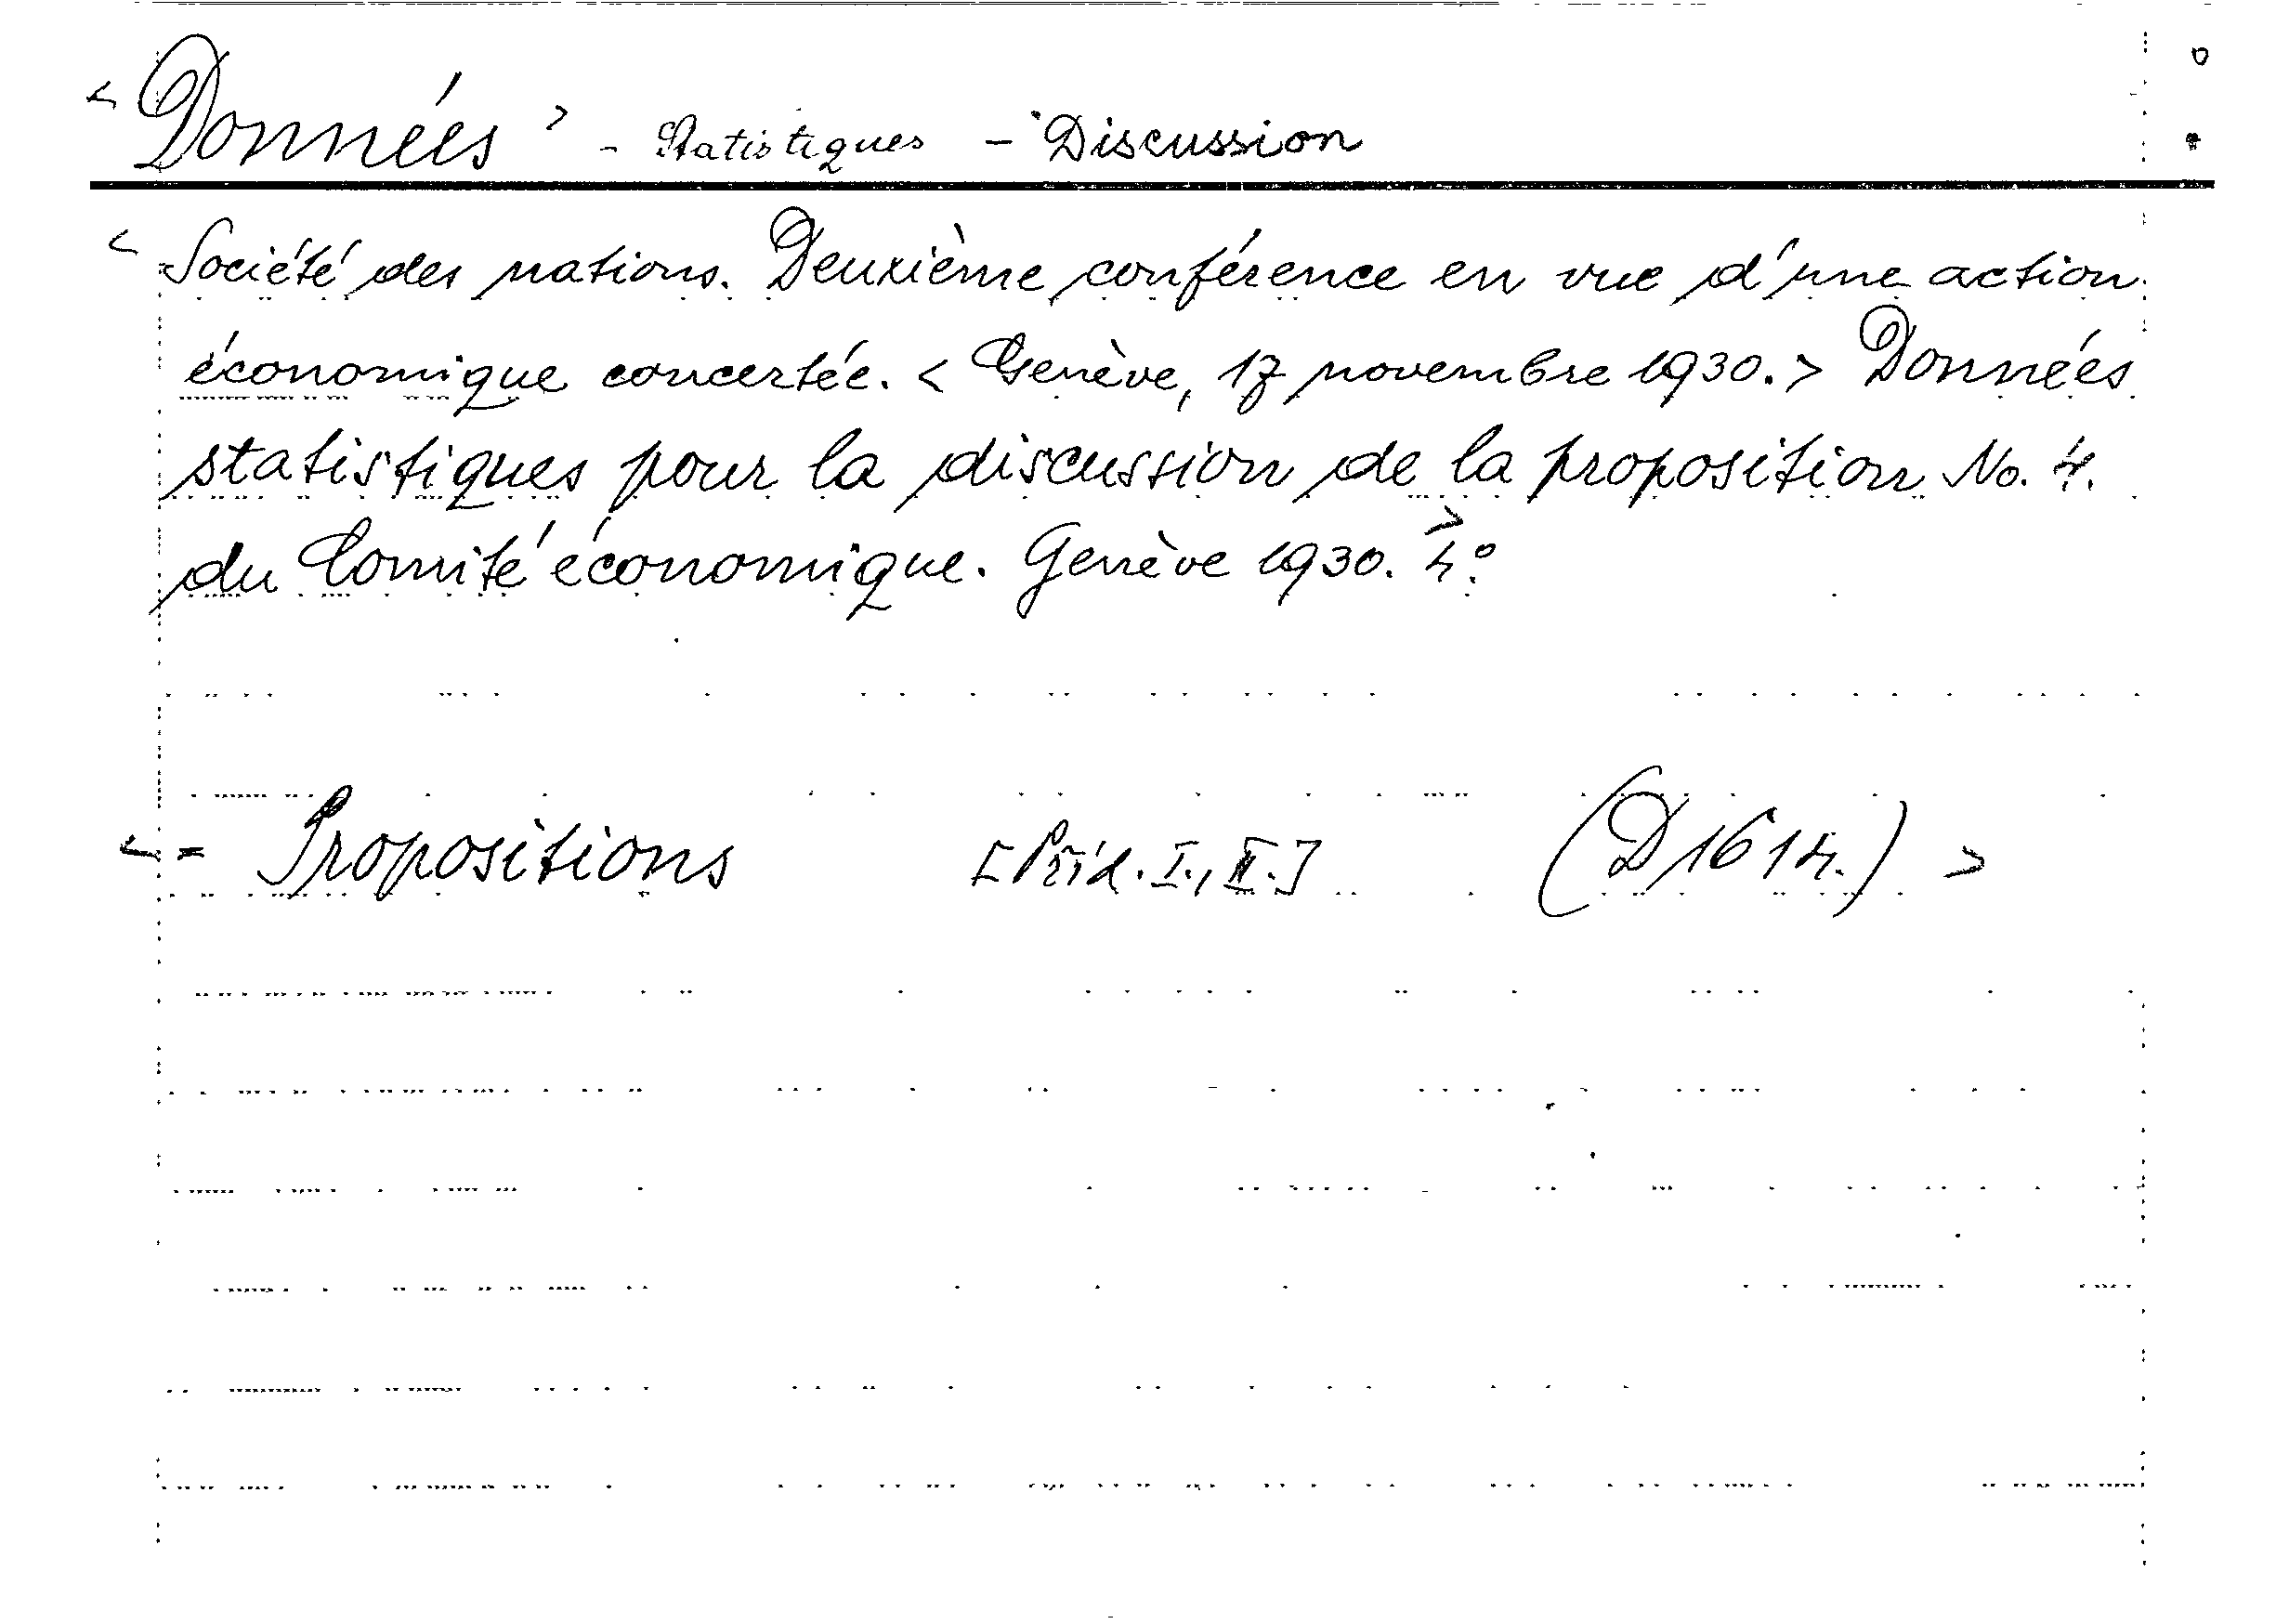 < Données > - Statistiques - Discussion
< Société des nations. Deuxième conférence en vue d'une action
économique concertée. < Genève, 17 novembre 1930. > Données
statistiques pour la discussion de la proposition No. 4.
du Comité économique. Genève 1930. > 4°.
< = Propositions [Příd. I., II.] (D 1614.) >